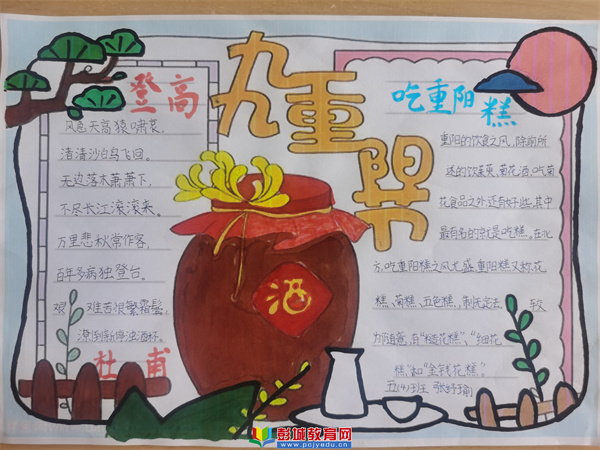 九重阳节
登高
风急天高猿啸哀,
渚清沙白鸟飞回。
无边落木萧萧下,
不尽长江滚滚来。
万里悲秋常作客,
百年多病独登台。
艰难苦恨繁霜鬓,
潦倒新停浊酒杯。
杜甫
酒
吃重阳糕
重阳的饮食之风,除前所
述的饮茱萸、菊花酒,吃菊
花食品之外还有好些,其中
最有名的就是吃糕。在北
方,吃重阳糕之风尤盛。重阳糕又称花
糕、菊糕、五色糕,制无定法, 较
为随意,有“糙花糕”、“细花
糕”和“金钱花糕”。
五(4)班
彭城教育网
www.pcjyedu.cn